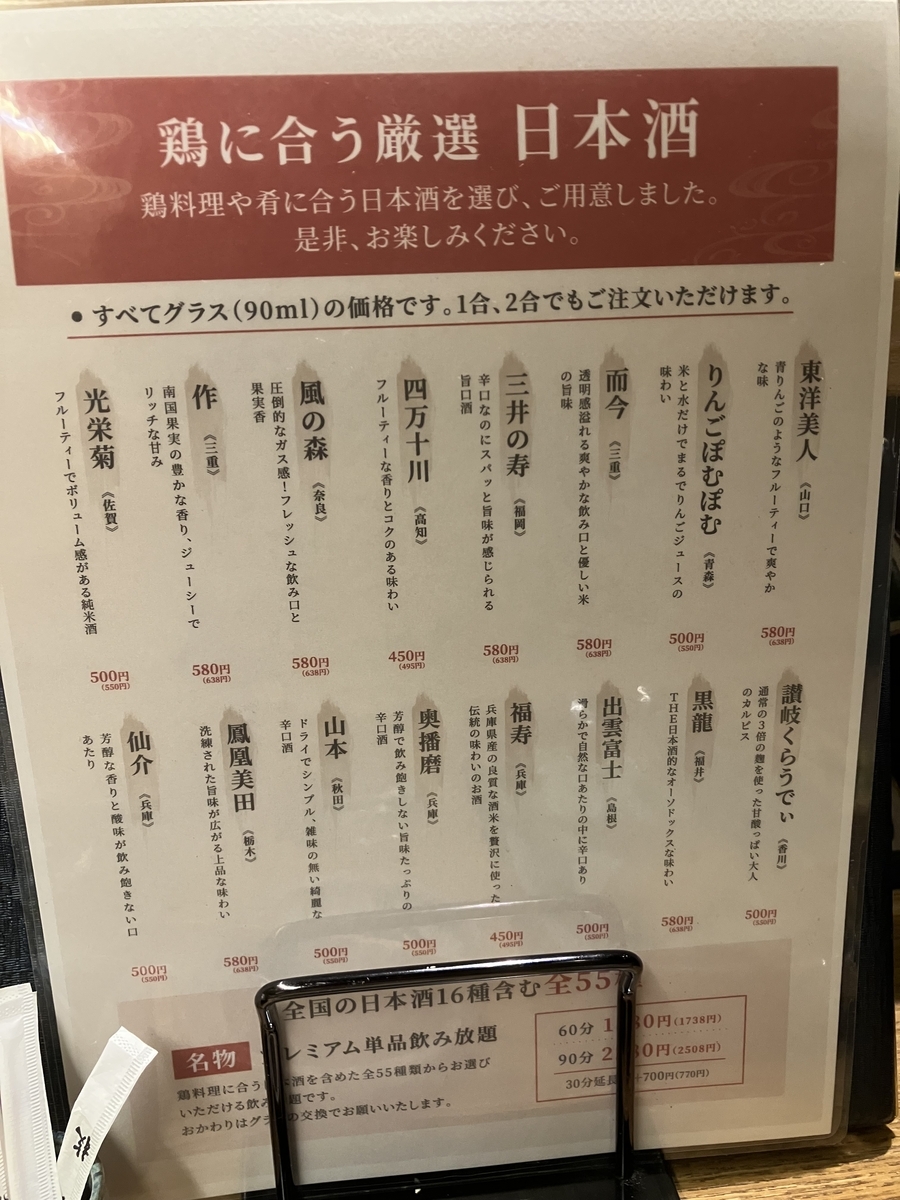 鶏に合う厳選 日本酒
鶏料理や肴に合う日本酒を選び、ご用意しました。
是非、お楽しみください。
● すべてグラス(90ml)の価格です。1合、2合でもご注文いただけます。
東洋美人 《山口》
青りんごのようなフルーティーで爽やか
な味
580円
(638円)
りんごぽむぽむ 《青森》
米と水だけでまるでりんごジュースの
味わい
500円
(550円)
而今 《三重》
透明感溢れる爽やかな飲み口と優しい米
の旨味
580円
(638円)
三井の寿 《福岡》
辛口なのにスパッと旨味が感じられる
旨口酒
580円
(638円)
四万十川 《高知》
フルーティーな香りとコクのある味わい
450円
(495円)
風の森 《奈良》
圧倒的なガス感!フレッシュな飲み口と
果実香
580円
(638円)
作 《三重》
南国果実の豊かな香り、ジューシーで
リッチな甘み
580円
(638円)
光栄菊 《佐賀》
フルーティーでボリューム感がある純米酒
500円
(550円)
讃岐くらうでぃ 《香川》
通常の3倍の麹を使った甘酸っぱい大人
のカルピス
500円
(550円)
黒龍 《福井》
THE日本酒的なオーソドックスな味わい
580円
(638円)
出雲富士 《島根》
滑らかで自然な口あたりの中に辛口あり
500円
(550円)
福寿 《兵庫》
兵庫県産の良質な酒米を贅沢に使った
伝統の味わいのお酒
450円
(495円)
奥播磨 《兵庫》
芳醇で飲み飽きしない旨味たっぷりの
辛口酒
500円
(550円)
山本 《秋田》
ドライでシンプル、雑味の無い綺麗な
辛口酒
500円
(550円)
鳳凰美田 《栃木》
洗練された旨味が広がる上品な味わい
580円
(638円)
仙介 《兵庫》
芳醇な香りと酸味が飲み飽きない口
あたり
500円
(550円)
全国の日本酒16種含む 全55
名物
レミアム単品飲み放題
鶏料理に合う 本酒を含めた全55種類からお選び
いただける飲み 題です。
おかわりはグラ の交換でお願いいたします。
60分 1 80円(1738円)
90分 2 80円(2508円)
30分延長 +700円(770円)